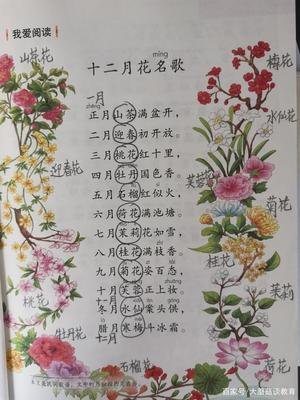 我爱阅读
míng
十二月花名歌
一月
zhēng
正月山茶满盆开，
二月迎春初开放。
三月桃花红十里，
四月牡丹国色香。
五月石榴红似火，
六月荷花满池塘。
七月茉莉花如雪，
八月桂花满枝香。
九月菊花姿百态，
十月芙蓉正上妆。
冬月水仙案头供，
腊月寒梅斗冰霜。
十一月
十二月
山茶花
迎春花
桃花
牡丹花
石榴花
梅花
水仙花
芙蓉花
菊花
桂花
茉莉
荷花
百家号/大蘑菇谈教育